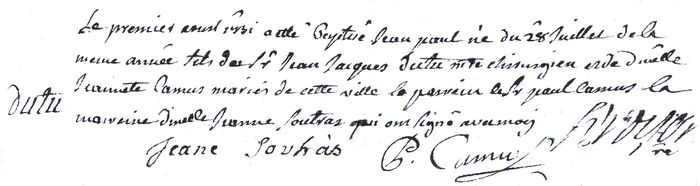 Le premier aoust 1731 a etté Baptisé Jean paul né du 28 Juillet de la
meme année fils de Sr Jean Jacques dutu mtre chirurgien et de dlle
Jeannete Camus mariés de cette ville le parrein le Sr paul Camus la
dutu
mareine dlle Jeanne Soutras qui ont signé avec moy
Jeane Soutràs P. Camus